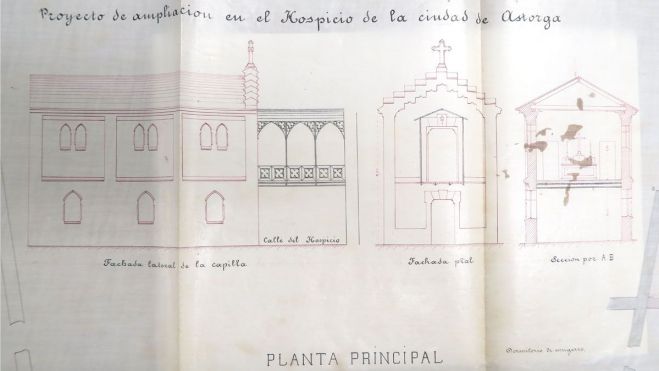 Proyecto de ampliacion en el Hospicio de la ciudad de Astorga
Calle del Hospicio
Fachada lateral de la capilla
Fachada pral
Seccion por A B
PLANTA PRINCIPAL
Dormitorio de mugeres